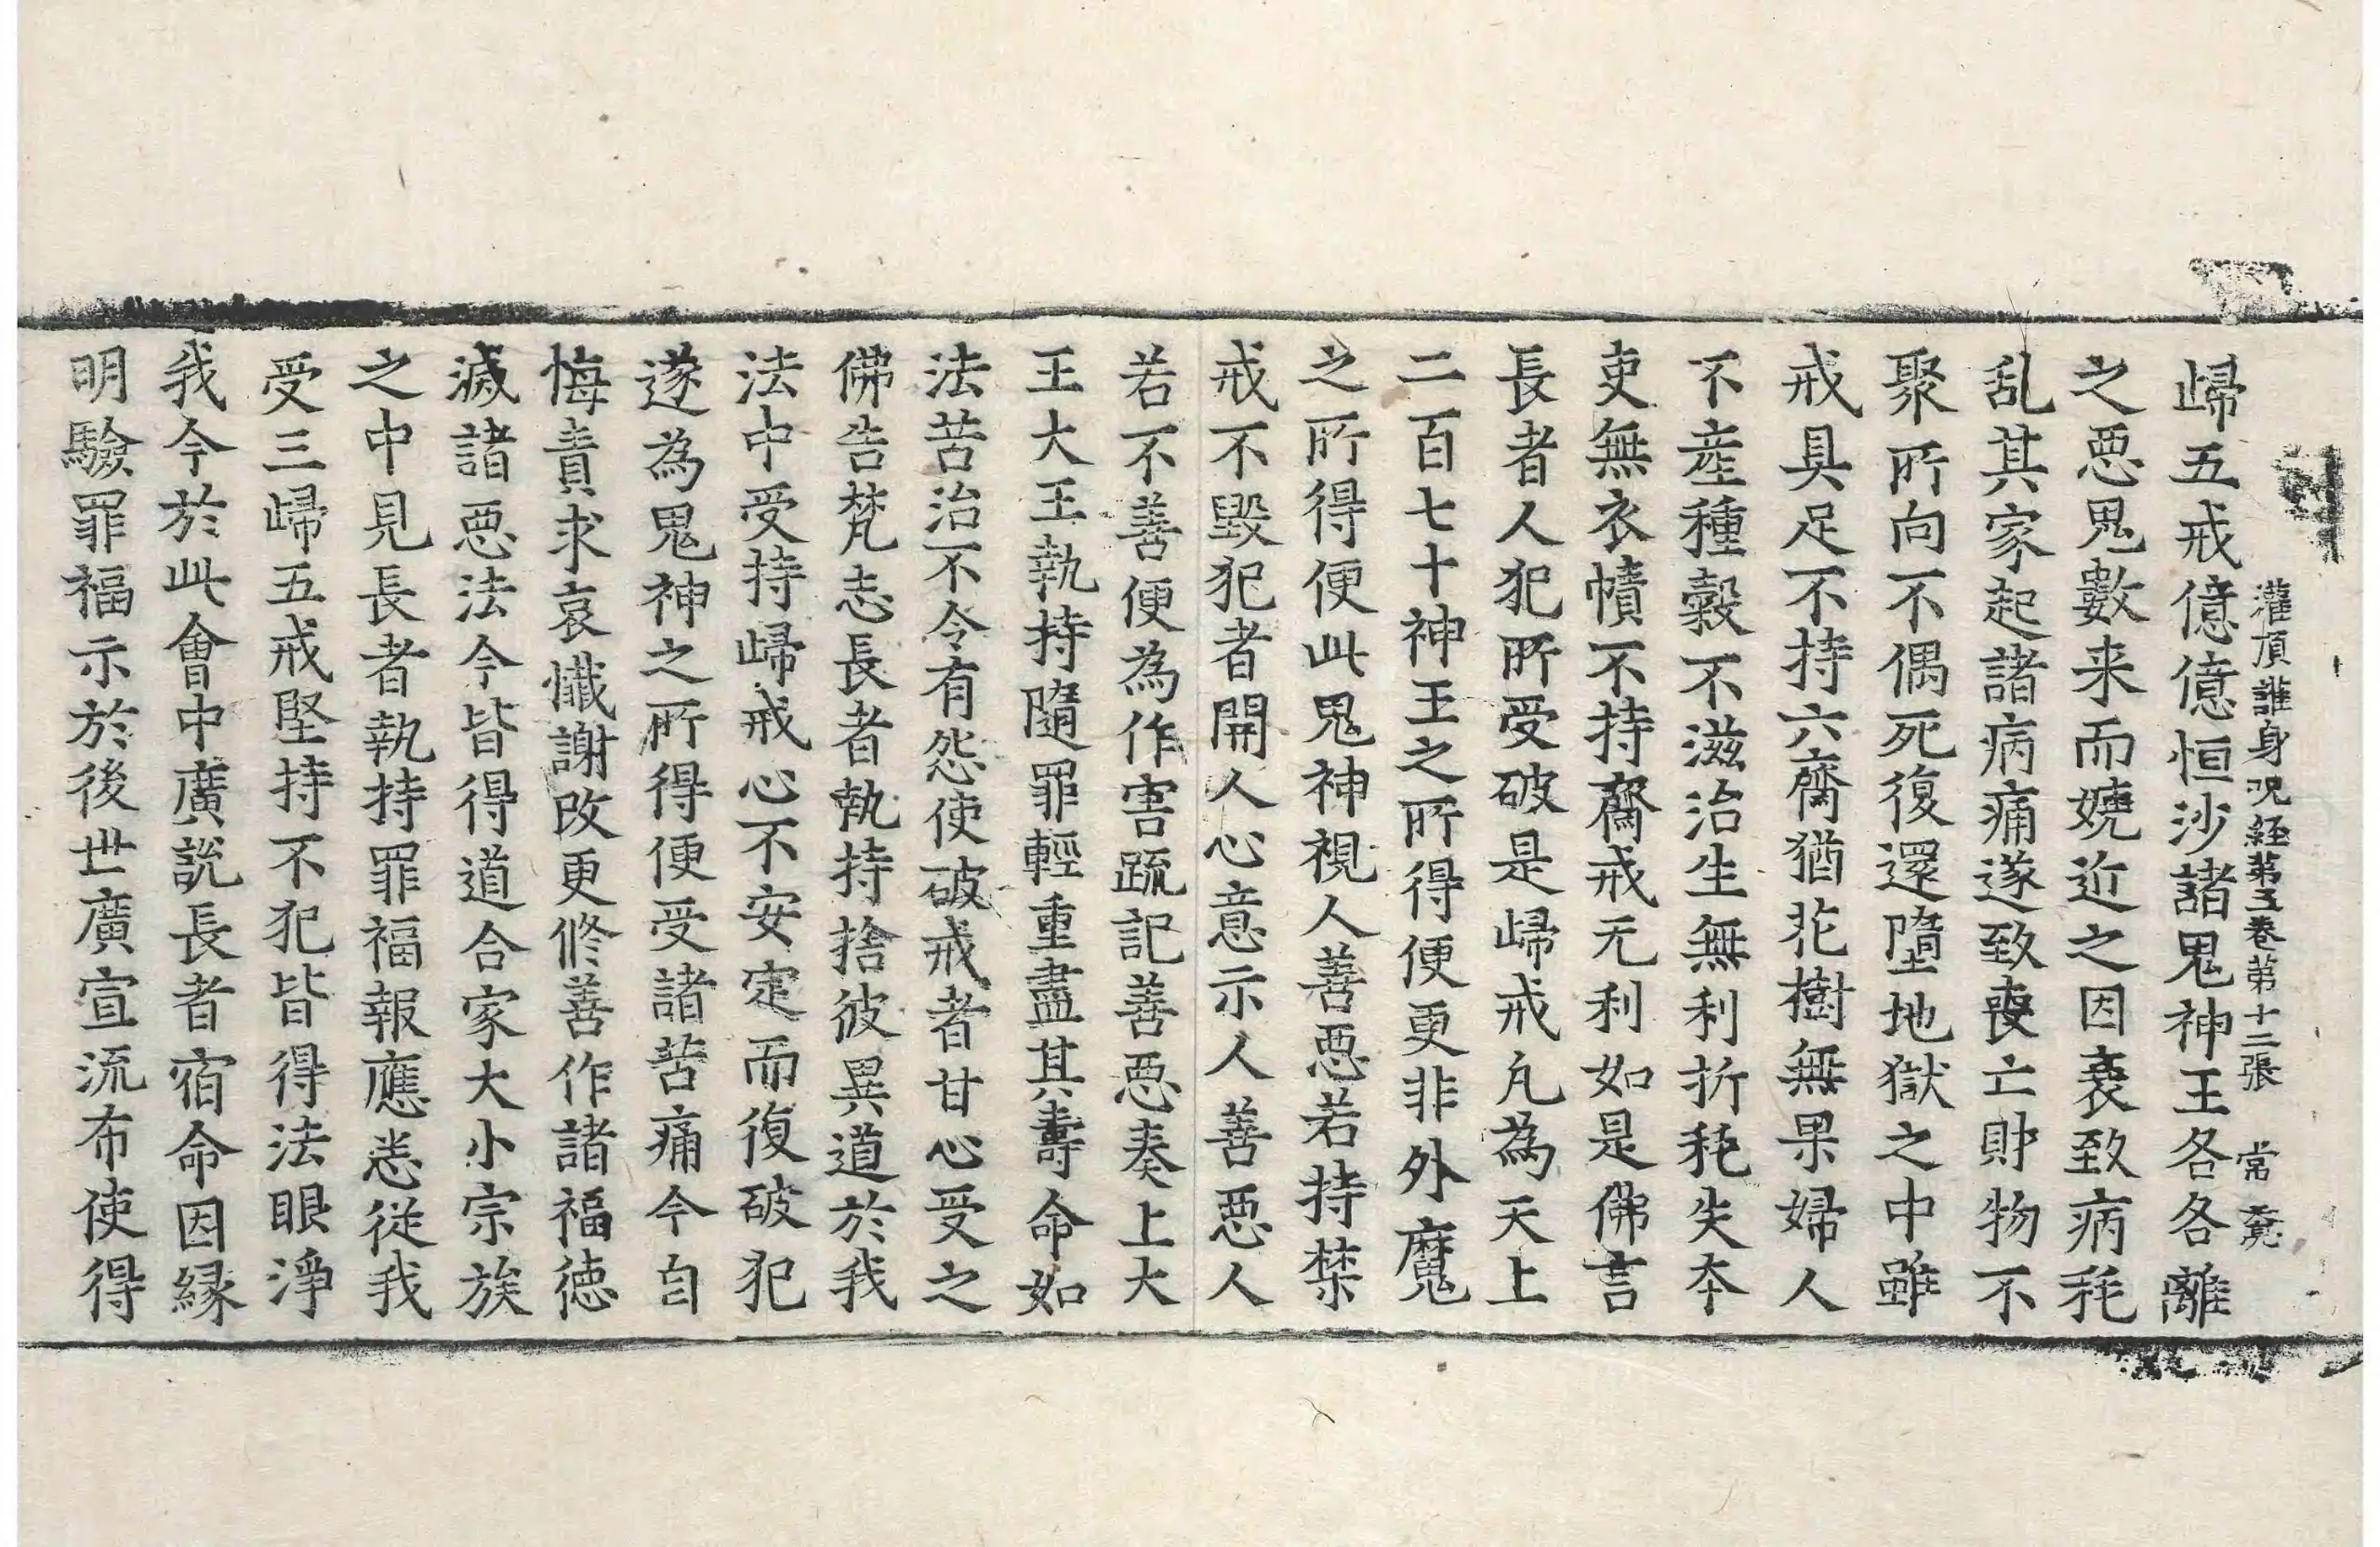 灌頂誰身呪経第五卷第十二張 常堯
歸五戒億億恒沙諸鬼神王各各離
之惡鬼數来而嬈近之因衰致病秏
乱其家起諸病痛遂致喪亡財物不
聚所向不偶死復還墮地獄之中雖
戒具足不持六齋猶花樹無果婦人
不産種糓不滋治生無利折秏失本
吏無衣幘不持齋戒无利如是佛言
長者人犯所受破是歸戒凡為天上
二百七十神王之所得便更非外魔
之所得便此鬼神視人善惡若持禁
戒不毀犯者開人心意示人善惡人
若不善便為作害疏記善惡奏上大
王大王執持隨罪輕重盡其壽命如
法苦治不令有怨使破戒者甘心受之
佛告梵志長者執持捨彼異道於我
法中受持歸戒心不安定而復破犯
遂為鬼神之所得便受諸苦痛今自
悔責求哀懺謝改更修善作諸福德
滅諸惡法今皆得道合家大小宗族
之中見長者執持罪福報應悉從我
受三歸五戒堅持不犯皆得法眼淨
我今於此會中廣說長者宿命因緣
明驗罪福示於後世廣宣流布使得